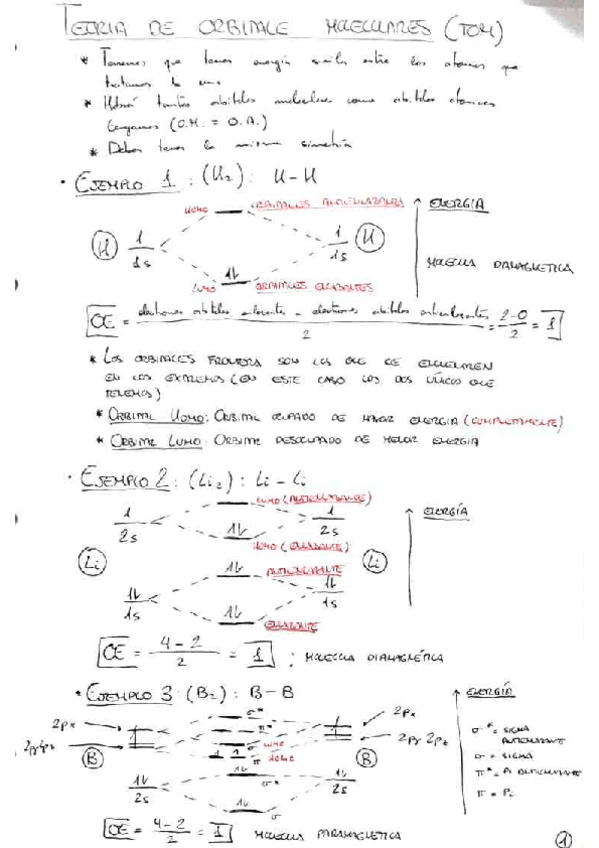 TEORIA DE ORBITALE MOLECULARES (TOM)
* Tenemos que tener energía similar entre los atomos que
tratamos de unir
* Habrá tantos orbitales moleculares como orbitales atomicos
tengamos (O.M. = O.A.)
* Deben tener la misma simetría
· EJEMPLO 1 : (H₂) : H - H
HOMO ORBITALES ANTIENLAZANTES ENERGÍA
H 1 1s 1 1s H
MOLECULA DIAMAGNETICA
LUMO 1L ORBITALES ENLAZANTES
OE = electrones orbitales enlazantes - electrones orbitales antienlazantes / 2 = 2-0 / 2 = 1
* LOS ORBITALES FRONTERA SON LOS QUE SE ENCUENTREN
EN LOS EXTREMOS (EN ESTE CASO LOS DOS ÚNICOS QUE
TENEMOS)
* ORBITAL HOMO: ORBITAL OCUPADO DE MAYOR ENERGIA (COMPLETAMENTE)
* ORBITAL LUMO: ORBITAL DESOCUPADO DE MENOR ENERGIA
· EJEMPLO 2 : (Li₂) : Li - Li
LUMO (ANTIENLAZANTE) ENERGÍA
1 2s 1L 1 2s
HOMO (ENLAZANTE)
Li Li
1L ANTIENLAZANTE
1L 1s 1L 1s
1L ENLAZANTE
OE = 4-2 / 2 = 1 ; MOLECULA DIAMAGNÉTICA
· EJEMPLO 3 : (B₂) : B - B
ENERGÍA
σ*
2px 2px
π*
σ LUMO
2py 2pz 2py 2pz
B 1 1 π HOMO B
1L 2s 1L σ* 1L 2s
1L σ
σ* = SIGMA ANTIENLAZANTE
σ = SIGMA
π* = PI ANTIENLAZANTE
π = PI
OE = 4-2 / 2 = 1 MOLECULA PARAMAGNETICA
1